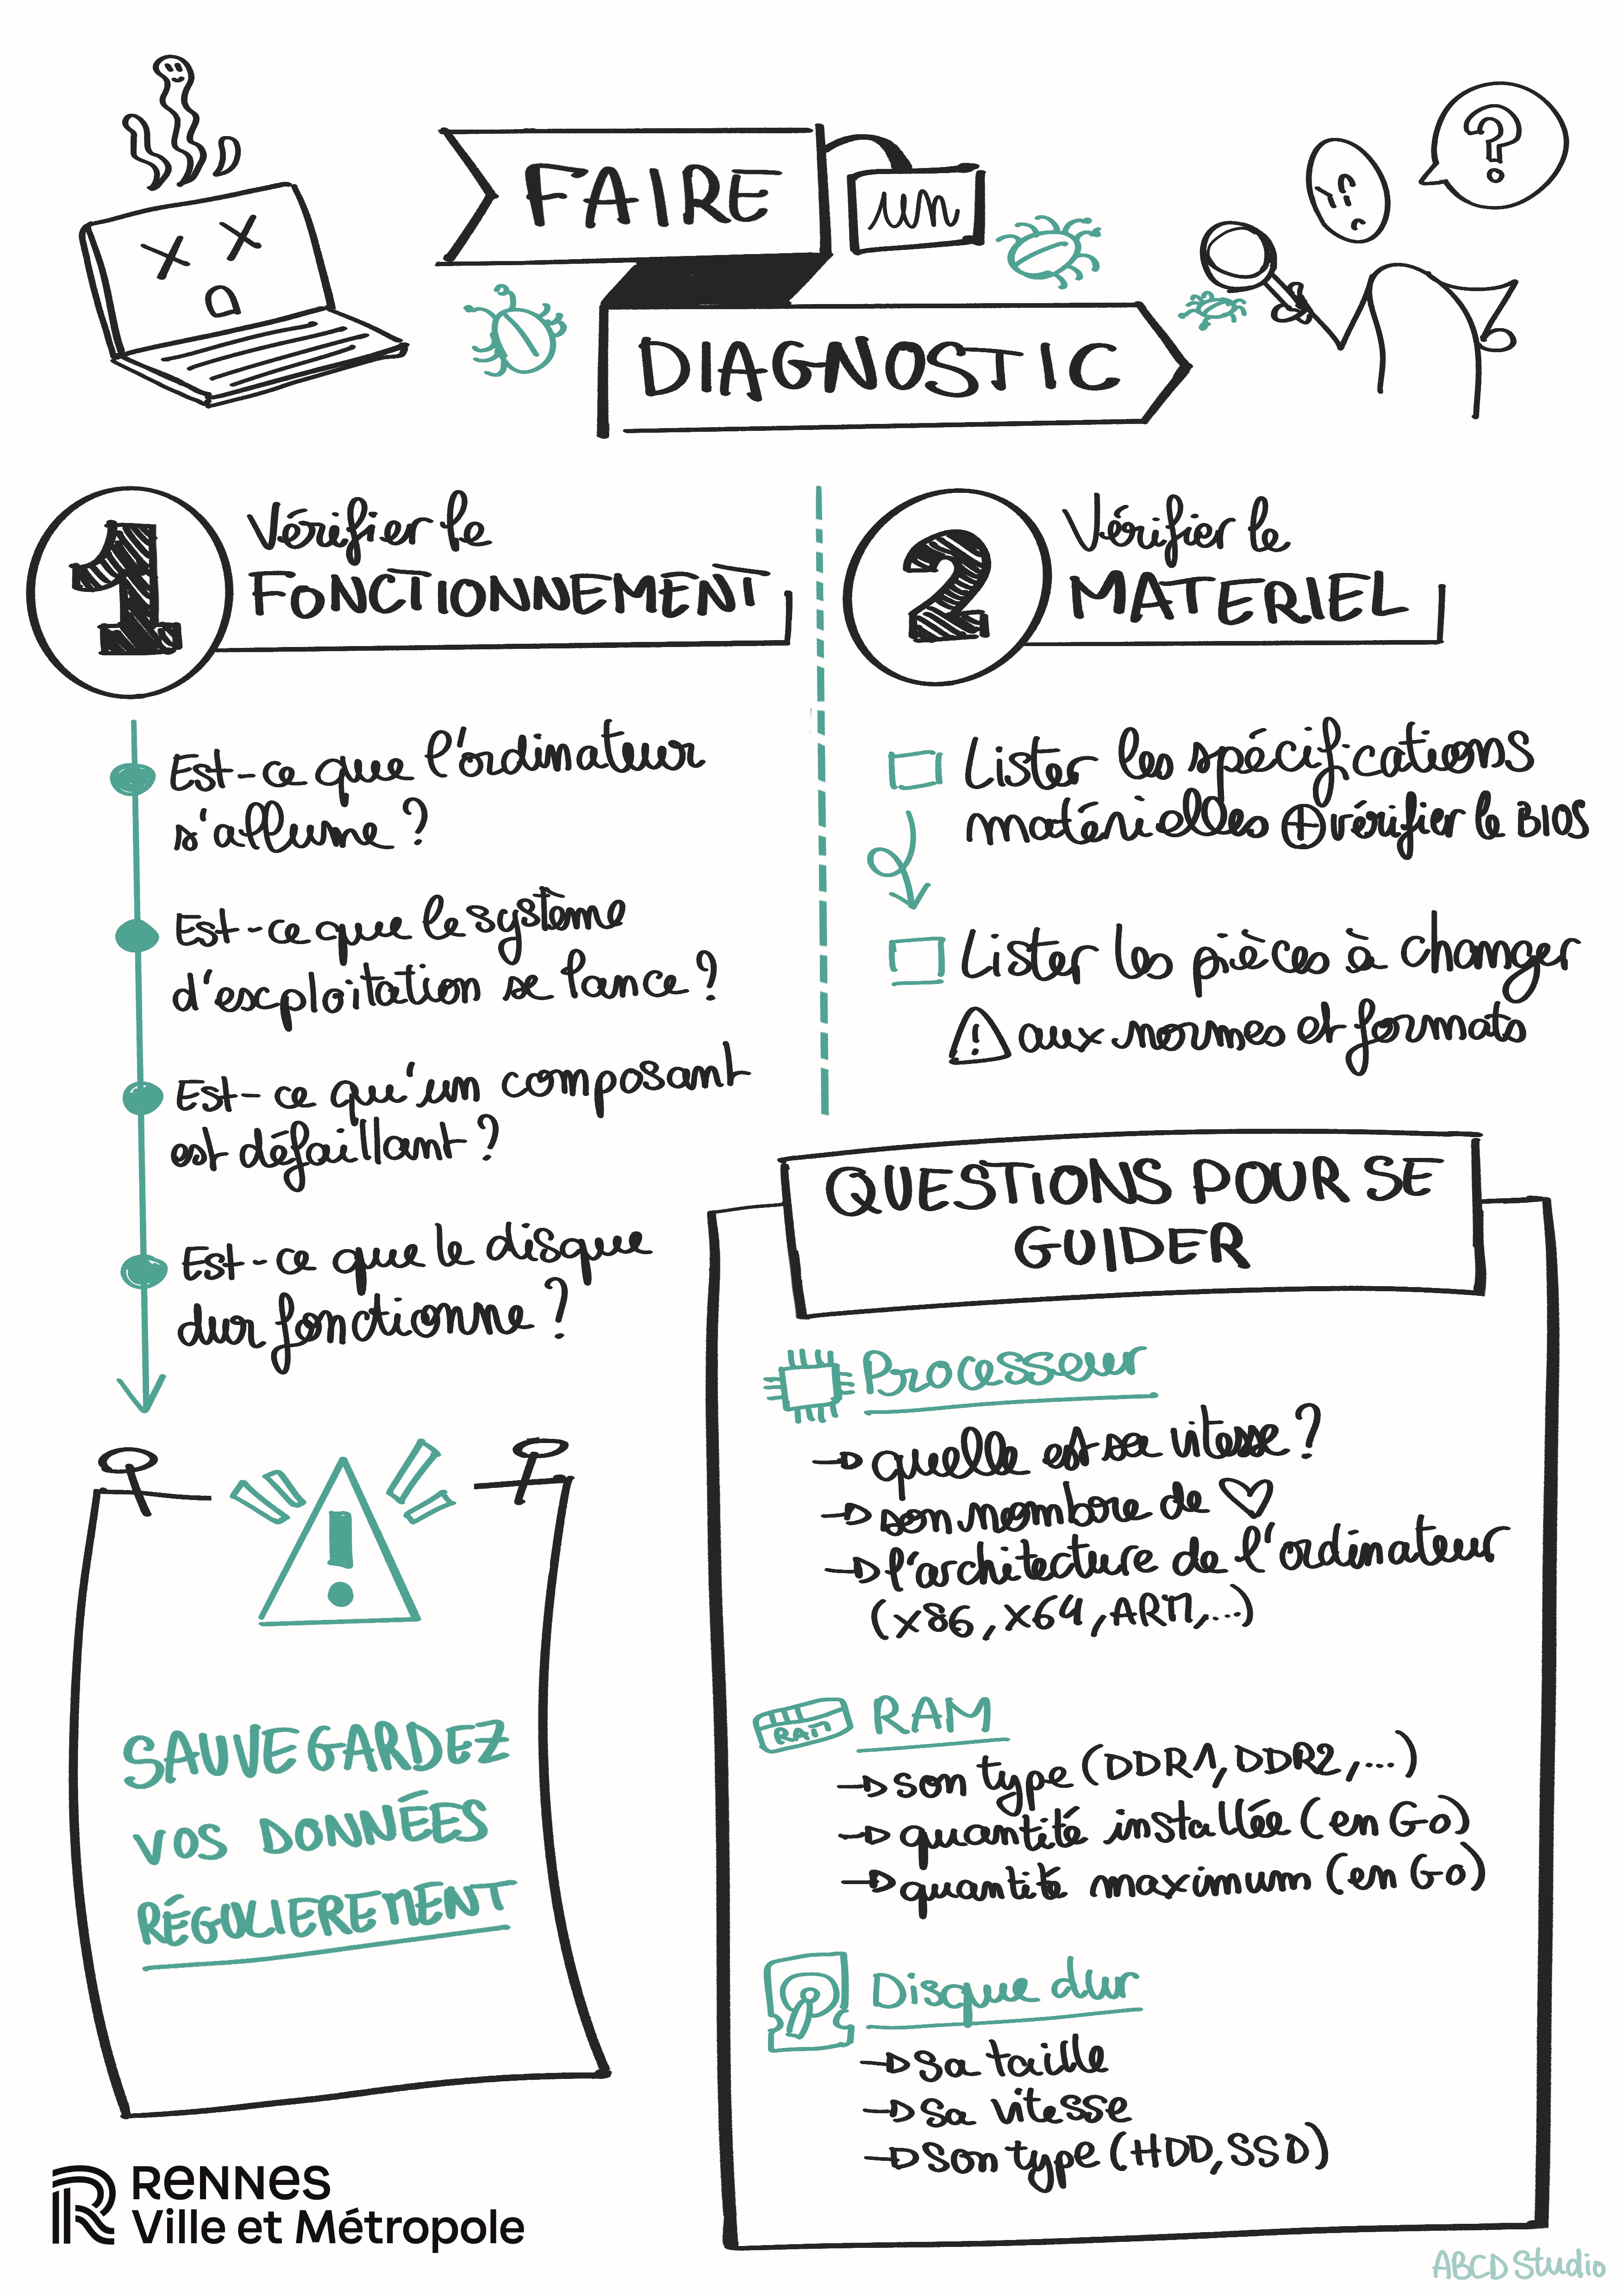 FAIRE
un
DIAGNOSTIC
?
1
Vérifier le
FONCTIONNEMENT
Est-ce que l'ordinateur
s'allume ?
Est-ce que le système
d'exploitation se lance ?
Est-ce qu'un composant
est défaillant ?
Est-ce que le disque
dur fonctionne ?
2
Vérifier le
MATERIEL
Lister les spécifications
matérielles + vérifier le BIOS
Lister les pièces à changer
! aux normes et formats
!
SAUVEGARDEZ
VOS DONNÉES
RÉGULIEREMENT
QUESTIONS POUR SE
GUIDER
Processeur
→ quelle est sa vitesse ?
→ son nombre de ♡
→ l'architecture de l'ordinateur
(x86, x64, ARM,...)
RAM
RAM
→ son type (DDR1, DDR2,...)
→ quantité installée (en Go)
→ quantité maximum (en Go)
Disque dur
→ sa taille
→ sa vitesse
→ son type (HDD, SSD)
RENNES
Ville et Métropole
ABCD Studio